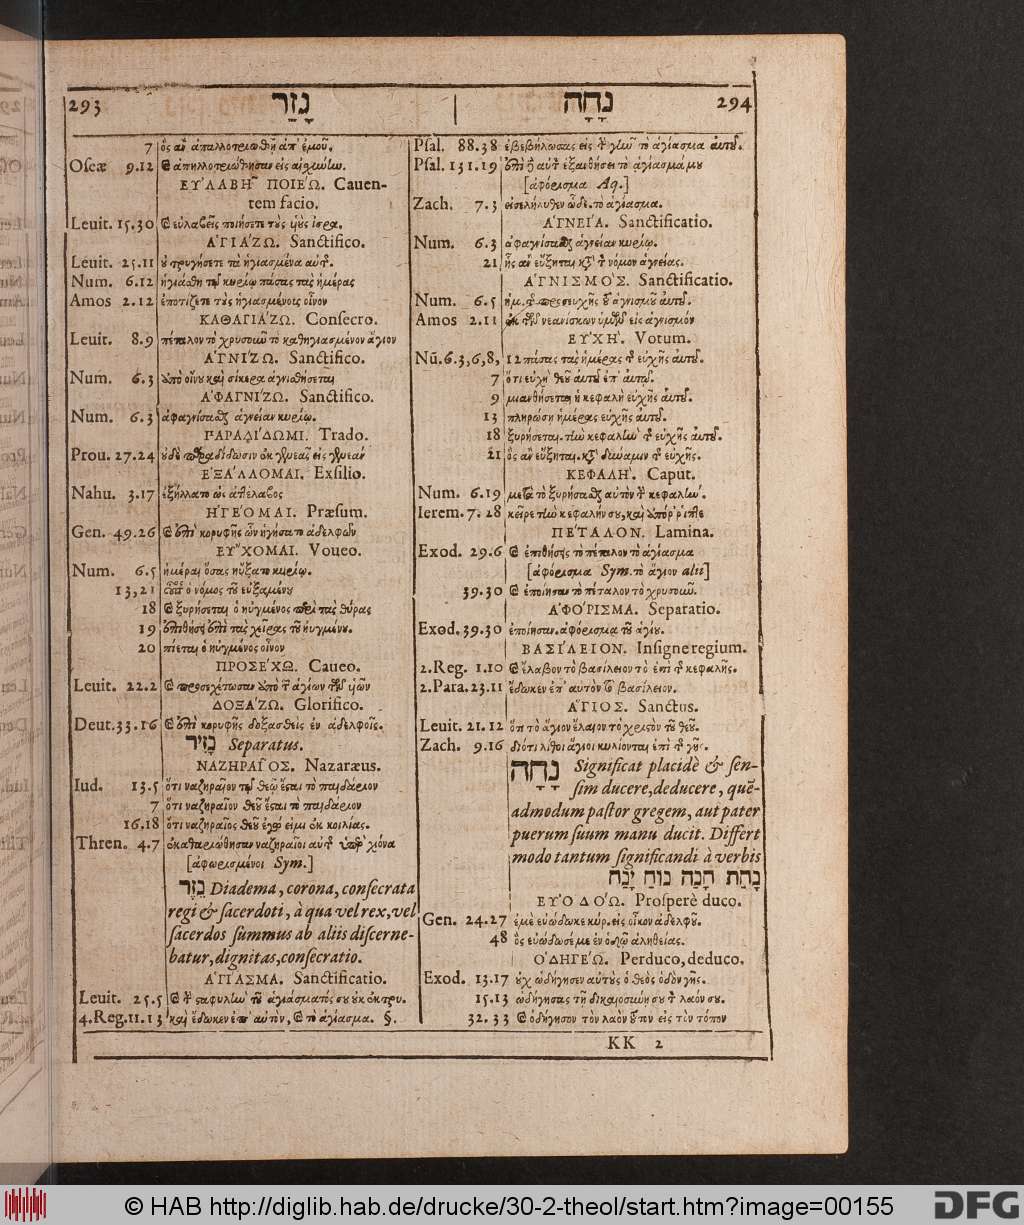 293 נָזַר
7 ὃς ἂν ἀπαλλοτριωθῇ ἀπ' ἐμοῦ.
Oſeæ 9.12 ϗ ἀπηλλοτριώθησαν εἰς αἰσχύνην.
ΕΥΛΑΒΗ͂ ΠΟΙΕΏ. Cauen-
tem facio.
Leuit. 15.30 ϗ εὐλαβεῖς ποιήσετε τοὺς υἱοὺς ἰσρα.
ἉΓΙΆΖΩ. Sanctifico.
Leuit. 25.11 οὐ τρυγήσετε τὰ ἡγιασμένα αὐτῆς.
Num. 6.12 ἡγιάσθη τῷ κυρίῳ πάσας τὰς ἡμέρας
Amos 2.12 ἐποτίζετε τοὺς ἡγιασμένους οἶνον
ΚΑΘΑΓΙΆΖΩ. Conſecro.
Leuit. 8.9 πέταλον τὸ χρυσοῦν τὸ καθηγιασμένον ἅγιον
ἉΓΝΊΖΩ. Sanctifico.
Num. 6.3 ἀπὸ οἴνου καὶ σίκερα ἁγνισθήσεται
ἈΦΑΓΝΊΖΩ. Sanctifico.
Num. 6.3 ἀφαγνίσασθαι ἁγνείαν κυρίῳ.
ΠΑΡΑΔΊΔΩΜΙ. Trado.
Prou. 27.24 οὐδὲ παραδίδωσιν ἐκ γενεᾶς εἰς γενεάν
ἘΞΆΛΛΟΜΑΙ. Exſilio.
Nahu. 3.17 ἐξήλλατο ὡς ἀττέλαβος
ἩΓΈΟΜΑΙ. Præſum.
Gen. 49.26 ϗ ἐπὶ κορυφῆς ὧν ἡγήσατο ἀδελφῶν
ΕΥ̓́ΧΟΜΑΙ. Voueo.
Num. 6.5 ἡμέραι ὅσας ηὔξατο κυρίῳ.
13,21 οὗτος ὁ νόμος τοῦ εὐξαμένου
18 ϗ ξυρήσεται ὁ ηὐγμένος παρὰ τὰς θύρας
19 ἐπιθήσει ἐπὶ τὰς χεῖρας τοῦ ηὐγμένου.
20 πίεται ὁ ηὐγμένος οἶνον
ΠΡΟΣΈΧΩ. Caueo.
Leuit. 22.2 ϗ προσεχέτωσαν ἀπὸ τῶν ἁγίων τῶν υἱῶν
ΔΟΞΆΖΩ. Glorifico.
Deut. 33.16 ϗ ἐπὶ κορυφῆς δοξασθεὶς ἐν ἀδελφοῖς.
נָזִיר Separatus.
ΝΑΖΗΡΑΓΟΣ. Nazaræus.
Iud. 13.5 ὅτι ναζηραῖον τῷ θεῷ ἔσται τὸ παιδάριον
7 ὅτι ναζηραῖον θεοῦ ἔσται τὸ παιδάριον
16.18 ὅτι ναζηραῖος θεοῦ ἐγώ εἰμι ἐκ κοιλίας.
Thren. 4.7 ἐκαθαριώθησαν ναζηραῖοι αὐτῆς ὑπὲρ χιόνα
[ἀφωρισμένοι Sym.]
נֵזֶר Diadema, corona, conſecrata
regi & ſacerdoti, à qua vel rex, vel
ſacerdos ſummus ab aliis diſcerne-
batur, dignitas, conſecratio.
ἉΓΊΑΣΜΑ. Sanctificatio.
Leuit. 25.5 ϗ τὴν σταφυλὴν τοῦ ἁγιάσματός σου οὐκ ἐκτρυ.
4.Reg. 11.13 καὶ ἔδωκεν ἐπ' αὐτὸν, ϗ τὸ ἁγίασμα. §.
נָחָה 294
Pſal. 88.38 ἐβεβήλωσας εἰς τὴν γῆν τὸ ἁγίασμα αὐτοῦ.
Pſal. 131.19 ἐπὶ δὲ αὐτὸν ἐξανθήσει τὸ ἁγίασμά μου
[ἀφόρισμα Aq.]
Zach. 7.3 εἰσελήλυθεν ὧδε. τὸ ἁγίασμα.
ἉΓΝΕΊΑ. Sanctificatio.
Num. 6.3 ἀφαγνίσασθαι ἁγνείαν κυρίῳ.
21 ἧς ἂν εὔξηται κατὰ τὸν νόμον ἁγνείας.
ἉΓΝΙΣΜΌΣ. Sanctificatio.
Num. 6.5 ἡμ. τῆς προσευχῆς τοῦ ἁγνισμοῦ αὐτοῦ.
Amos 2.11 ἐκ τῶν νεανίσκων ὑμῶν εἰς ἁγνισμόν
ΕΥ̓ΧΉ. Votum.
Nū. 6.3,6,8, 12 πάσας τὰς ἡμέρας τῆς εὐχῆς αὐτοῦ.
7 ὅτι εὐχὴ θεοῦ αὐτοῦ ἐπ' αὐτῷ.
9 μιανθήσεται ἡ κεφαλὴ εὐχῆς αὐτοῦ.
13 πληρώσῃ ἡμέρας εὐχῆς αὐτοῦ.
18 ξυρήσεται. τὴν κεφαλὴν τῆς εὐχῆς αὐτοῦ.
21 ὃς ἂν εὔξηται. κατὰ δύναμιν τῆς εὐχῆς.
ΚΕΦΑΛΉ. Caput.
Num. 6.19 μετὰ τὸ ξυρήσασθαι αὐτὸν τὴν κεφαλήν.
Ierem. 7.28 κεῖρε τὴν κεφαλήν σου, καὶ ἀπόρριπτε
ΠΈΤΑΛΟΝ. Lamina.
Exod. 29.6 ϗ ἐπιθήσεις τὸ πέταλον τὸ ἁγίασμα
[ἀφόρισμα Sym. τὸ ἅγιον alii]
39.30 ϗ ἐποίησαν τὸ πέταλον τὸ χρυσοῦν.
ἈΦΌΡΙΣΜΑ. Separatio.
Exod. 39.30 ἐποίησαν. ἀφόρισμα τοῦ ἁγίου.
ΒΑΣΊΛΕΙΟΝ. Inſigne regium.
2.Reg. 1.10 ϗ ἔλαβον τὸ βασίλειον τὸ ἐπὶ τῆς κεφαλῆς.
2.Para. 23.11 ἔδωκεν ἐπ' αὐτὸν τὸ βασίλειον.
ἍΓΙΟΣ. Sanctus.
Leuit. 21.12 ὅτι τὸ ἅγιον ἔλαιον τὸ χριστὸν τοῦ θεοῦ.
Zach. 9.16 διότι λίθοι ἅγιοι κυλίονται ἐπὶ τῆς γῆς.
נָחָה Significat placidè & ſen-
ſim ducere, deducere, quē-
admodum paſtor gregem, aut pater
puerum ſuum manu ducit. Differt
modo tantum ſignificandi à verbis
נָהַת הָנַה נוּחַ יָנַח
ΕΥ̓ΟΔΌΩ. Proſperè duco.
Gen. 24.27 ἐμὲ εὐώδωκε κύρ. εἰς οἶκον ἀδελφοῦ.
48 ὃς εὐώδωσέ με ἐν ὁδῷ ἀληθείας.
ὉΔΗΓΈΩ. Perduco, deduco.
Exod. 13.17 οὐχ ὡδήγησεν αὐτοὺς ὁ θεὸς ὁδὸν γῆς.
15.13 ὡδήγησας τῇ δικαιοσύνῃ σου τὸν λαόν σου.
32.33 ϗ ὁδήγησον τὸν λαὸν τοῦτον εἰς τὸν τόπον
KK 2
© HAB http://diglib.hab.de/drucke/30-2-theol/start.htm?image=00155 DFG